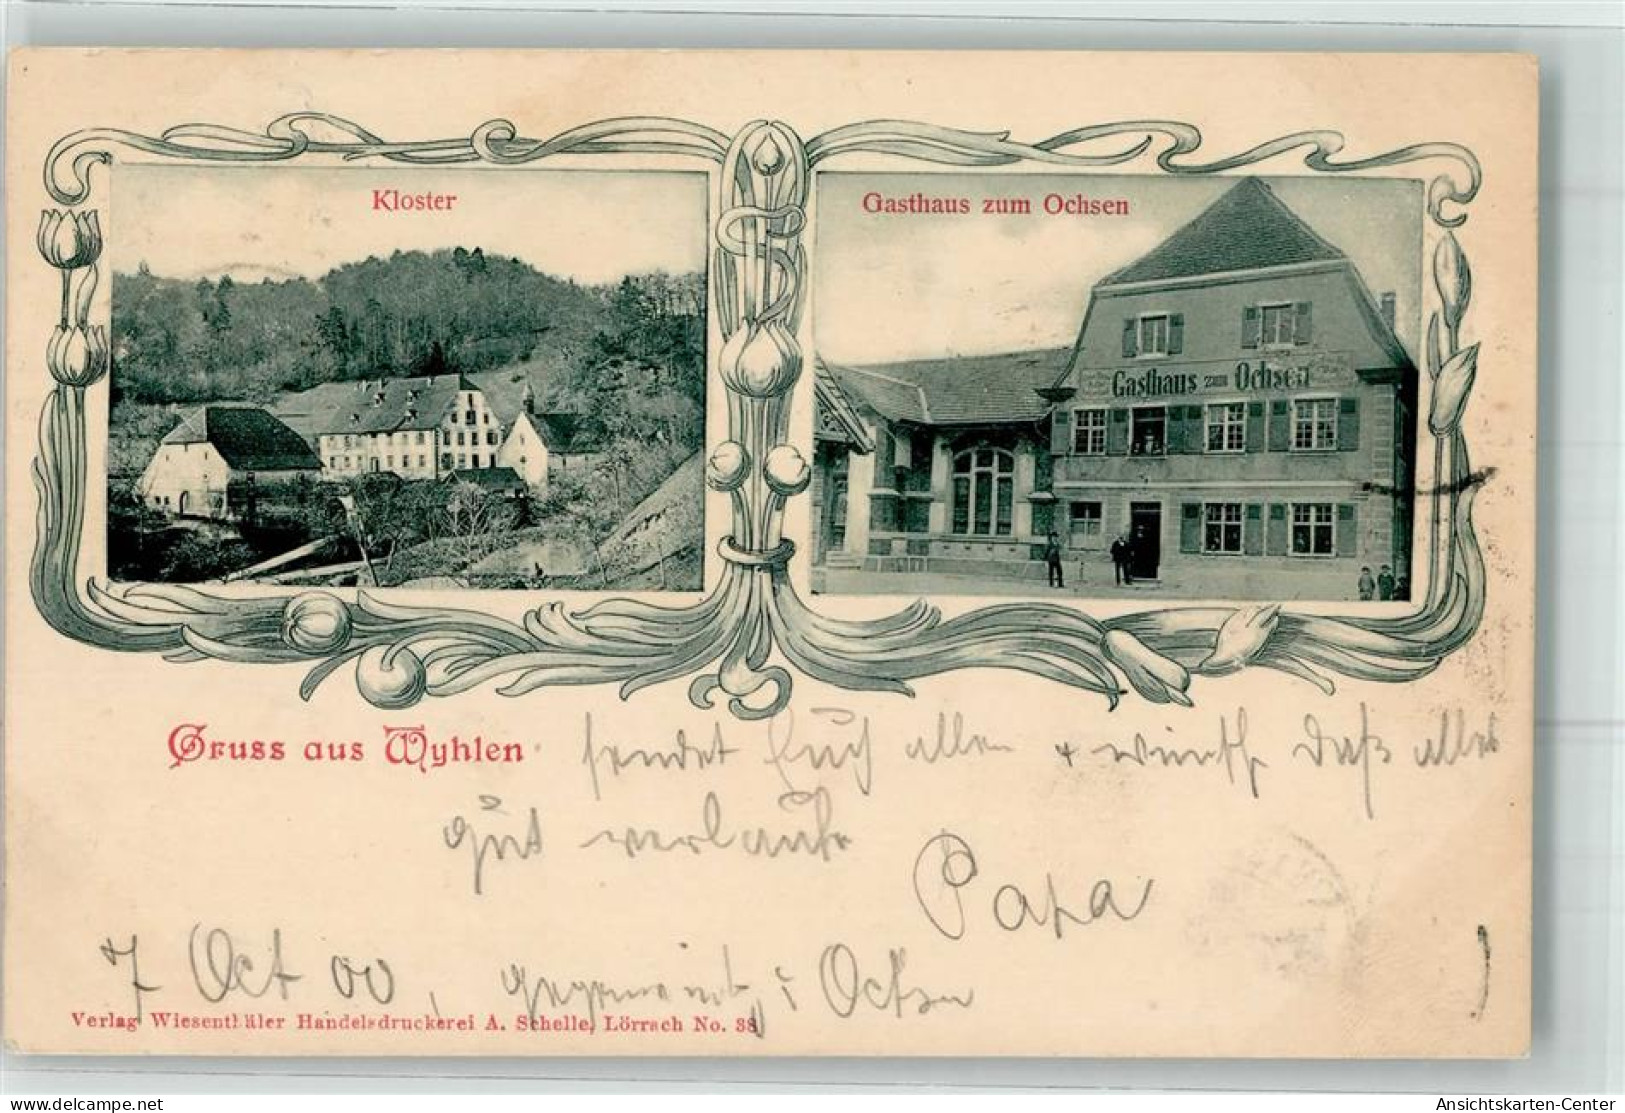 Kloster
Gasthaus zum Ochsen
Gasthaus zum Ochsen
Gruss aus Wyhlen sendet Euch allen + wünsch daß alles
gut verlaufe
Papa
7 Oct 00, i Ochsen
Verlag Wiesenthäler Handelsdruckerei A. Schelle, Lörrach No. 38
delcampe.net
Ansichtskarten-Center